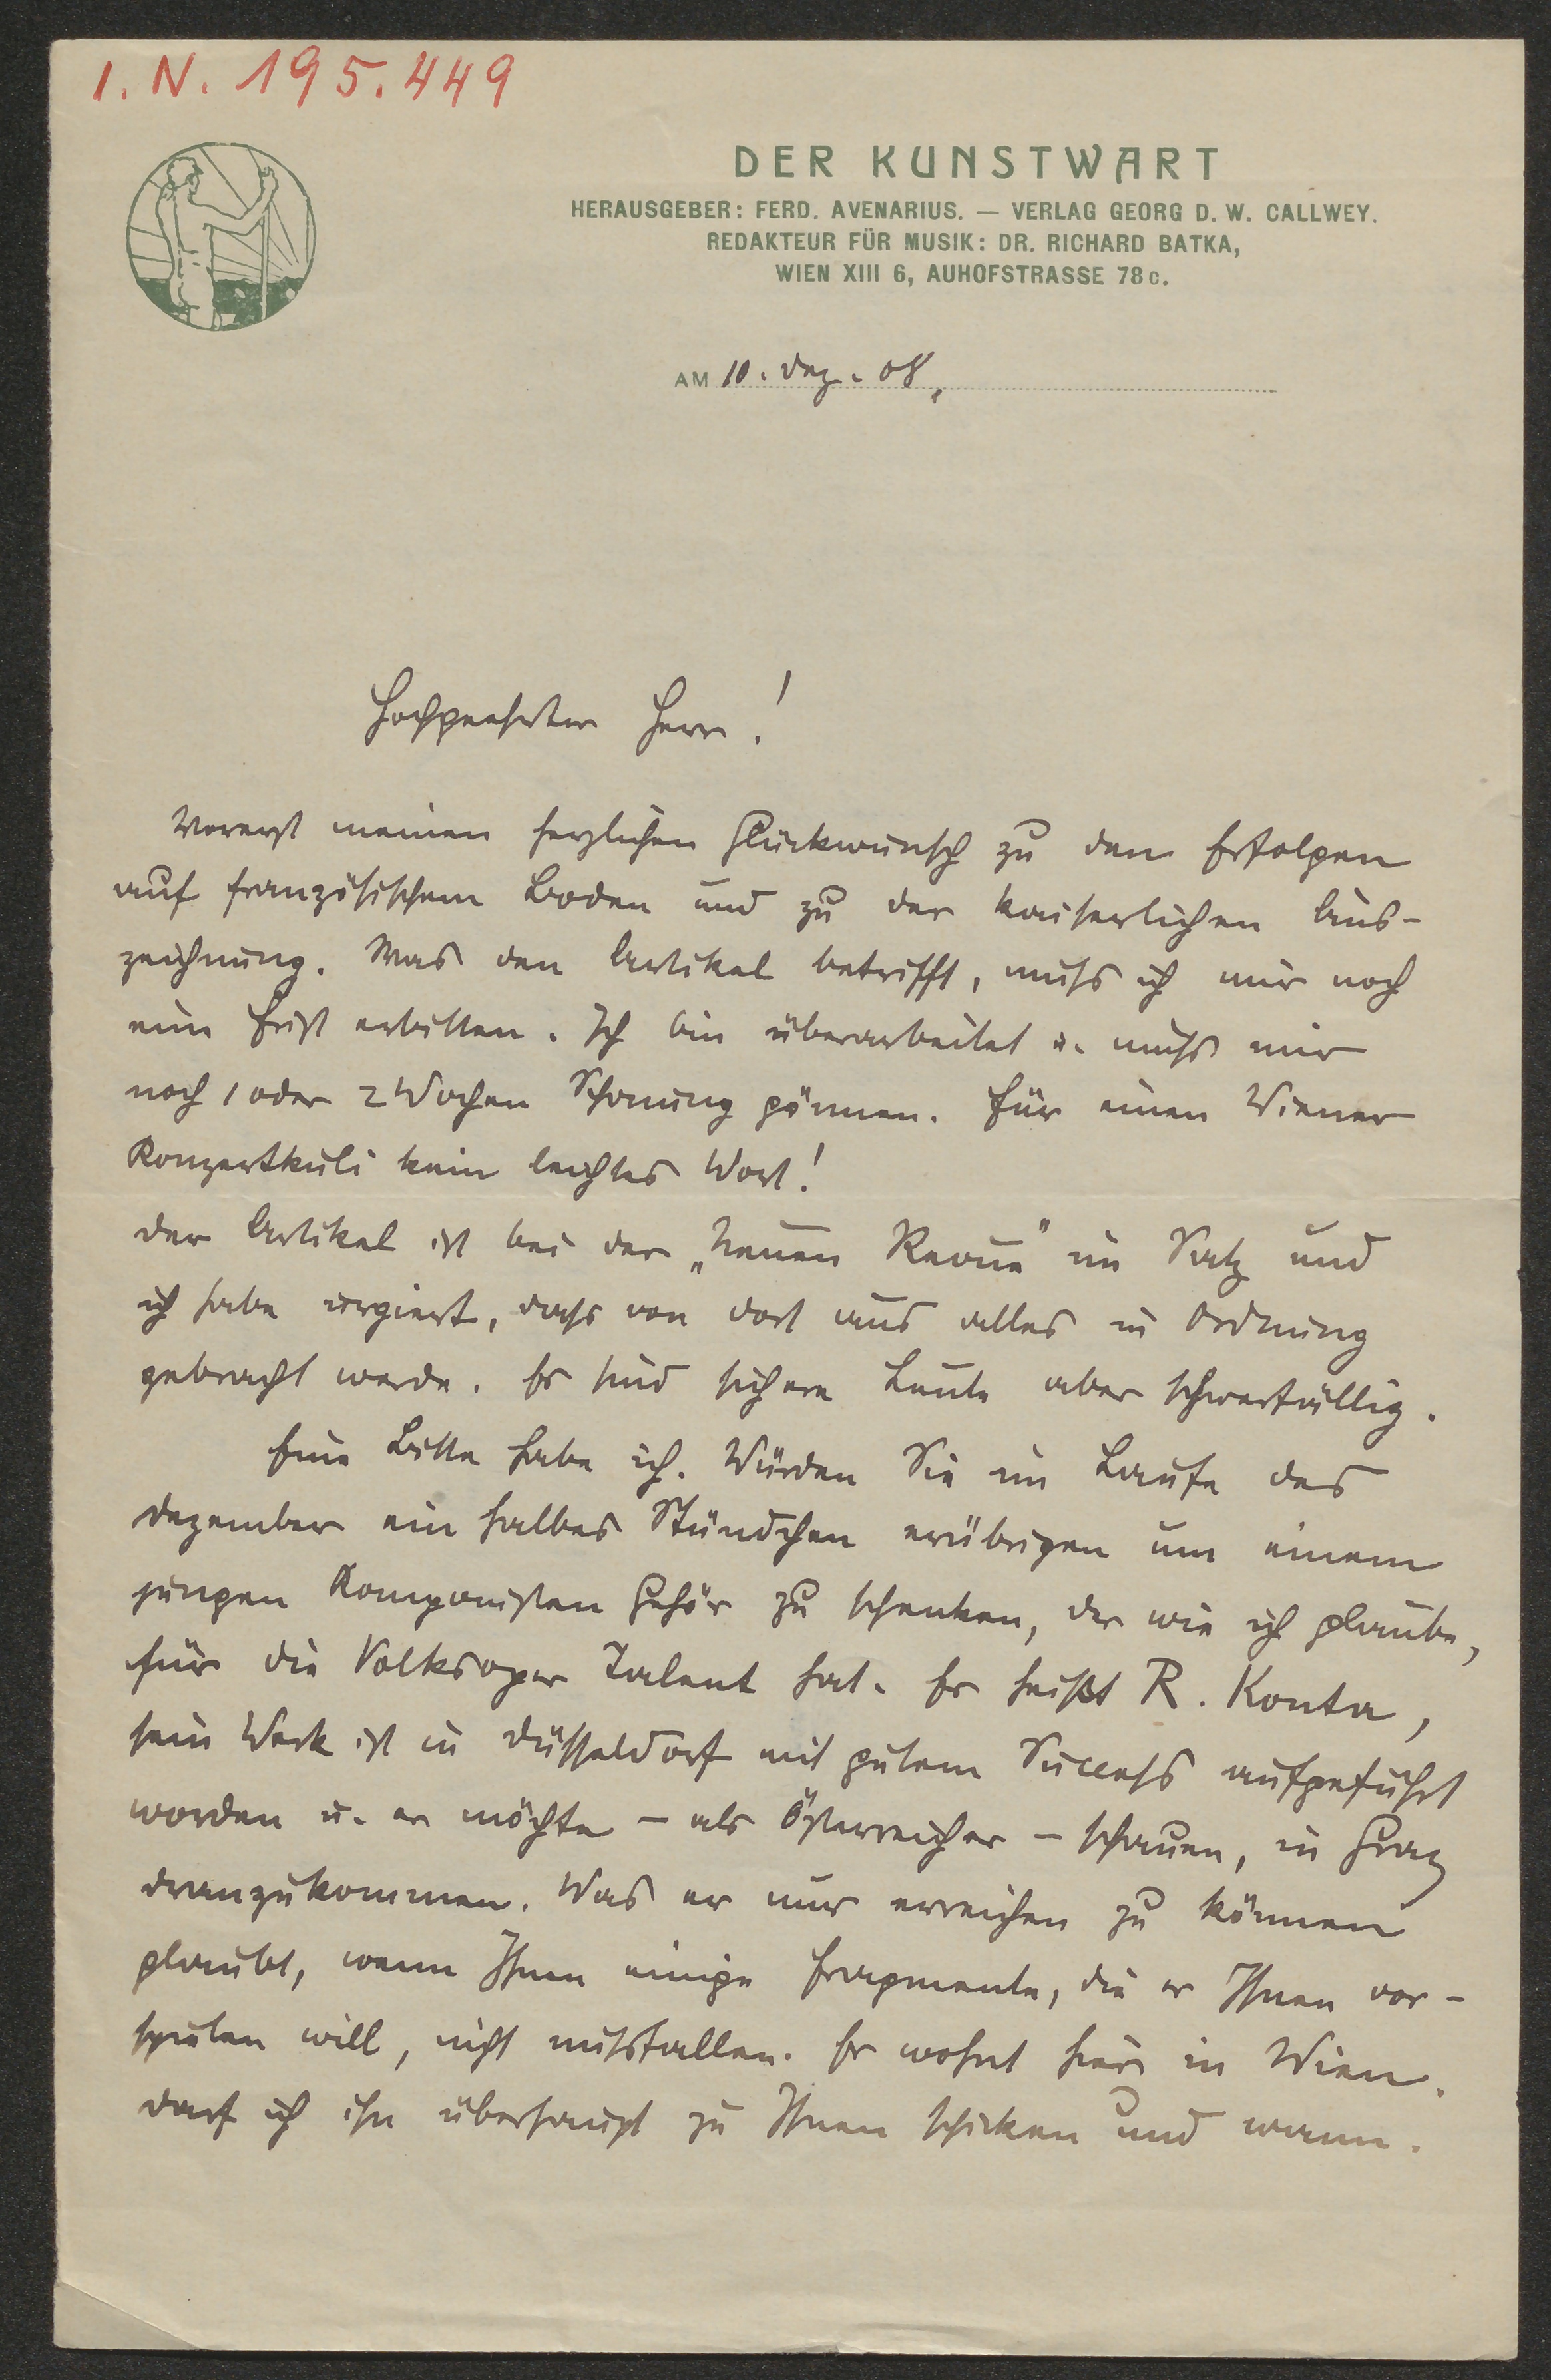 I. N. 195.449
DER KUNSTWART
HERAUSGEBER: FERD. AVENARIUS. — VERLAG GEORG D. W. CALLWEY.
REDAKTEUR FÜR MUSIK: DR. RICHARD BATKA,
WIEN XIII 6, AUHOFSTRASSE 78c.
AM 10. Dez. 08.
Hochgeehrter Herr!
Vorerst meinen herzlichen Glückwunsch zu den Erfolgen
auf französischem Boden und zu der kaiserlichen Aus-
zeichnung. Was den Artikel betrifft, muss ich mir noch
eine Frist erbitten. Ich bin überarbeitet u. muss mir
noch 1 oder 2 Wochen Schonung gönnen. Für einen Wiener
Konzertkuli kein leichtes Wort!
Der Artikel ist bei der „Neuen Revue" im Satz und
ich habe urgiert, dass von dort aus alles in Ordnung
gebracht werde. Es sind sichere Leute aber schwerfällig.
Eine Bitte habe ich. Würden Sie im Laufe des
Dezember ein halbes Stündchen erübrigen um einem
jungen Komponisten Gehör zu schenken, der wie ich glaube,
für die Volksoper Talent hat. Er heißt R. Konta,
sein Werk ist in Düsseldorf mit gutem Success aufgeführt
worden u. er möchte – als Österreicher – schauen, in Graz
dranzukommen. Was er nur erreichen zu können
glaubt, wenn Ihnen einige Fragmente, die er Ihnen vor-
spielen will, nicht missfallen. Er wohnt hier in Wien.
Darf ich ihn überhaupt zu Ihnen schicken und wann.